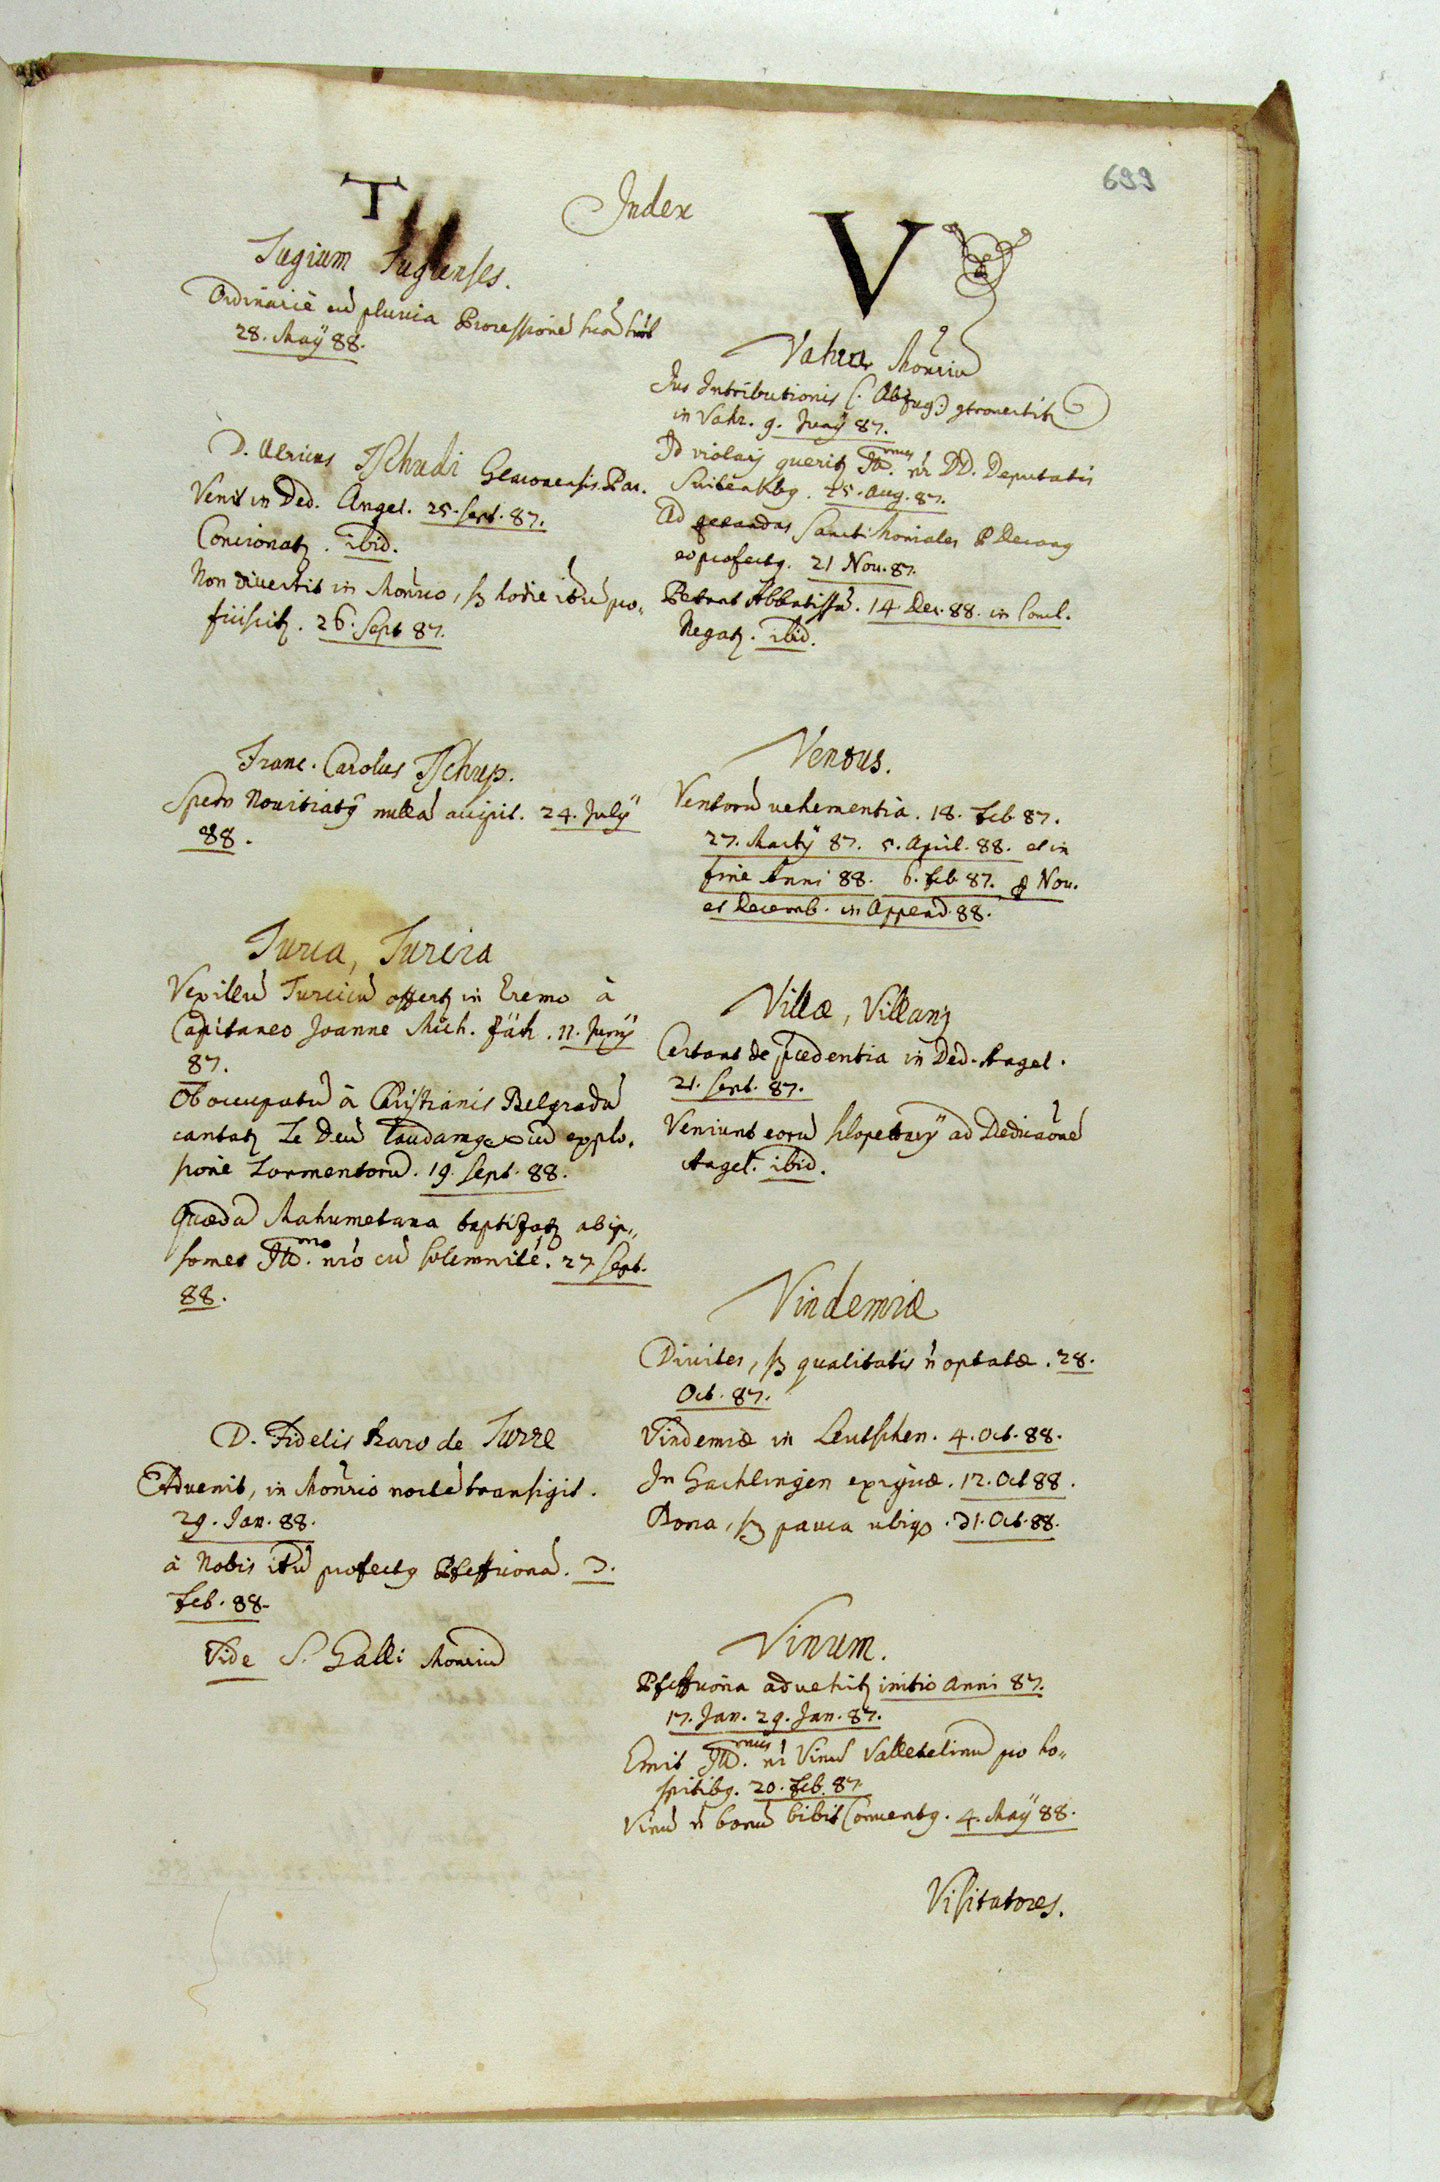 699
Index
T
Tugium Tugienses.
Ordinariè cū pluvia Processionē
28. Maÿ 88.
D. Ulricus Tschudi Glaronensis. Par.
Venit in Ded. Angel. 25. Sept. 87.
Concionatq. ibid.
Non divertit in Monrio, sz hodie itrū pro-
ficiscitq. 26. Sept 87.
Franc. Carolus Tschup.
Spem Novitiatq nullā accipit. 24. Julÿ
88.
Turca, Turcica
Vexillū Turcicū offertq in Eremo à
Capitaneo Joanne Mich. Fäh. 11. Junÿ
87.
Ob occupatū à Christianis Belgradū
cantatq Te Deū laudamq cū explo-
sione Tormentorū. 19. Sept. 88.
Quædā Mahumetana baptizatq ab ip-
somet Illmo. nrō cū solemnitē. 27 Sept.
88.
D. Fidelis Baro de Turre
Advenit, in Monrio noctē transigit.
29. Jan. 88.
à Nobis itrū profectq Pfeffercionā. 3.
Feb. 88.
Vide S. Galli Monriū
V
Vahr Monriū
Jus Intributionis (. Abzug:) controvertitq
in Vahr. 9. Junÿ 87.
Id violarj queritq Illmus. nr DD. Deputatis
Suitensibq. 25. Aug. 87.
Ad Sanctimoniales P Decanq
eo profectq. 21 Nov. 87.
Petunt Abbatissā. 14 Dec. 88. in Concl.
Negatq. ibid.
Ventus.
Ventorū vehementia. 18. Feb 87.
27. Martÿ 87. 5. April. 88. et in
fine Anni 88. 6. Feb 87. 8 Nov.
et Decemb. in Append. 88.
Villæ, Villanj
Certant de præcedentia in Ded. Angel.
21. Sept. 87.
Veniunt eorū sclopetarÿ ad Dedicaōnē
Angel. ibid.
Vindemiæ
Divites, sz qualitatis ñ optatæ. 28.
Oct. 87.
Vindemiæ in Leutschen. 4. Oct. 88.
In Gachlingen exiguæ. 12. Oct 88.
Bona, sz pauca ubiq. 31. Oct. 88.
Vinum.
advehitq initio Anni 87.
17. Jan. 29. Jan. 87.
Emit Illmus. nr Vinū Valletelinū pro ho-
spitibq. 20. Feb. 87.
Vinū ñ bonū bibit Conventq. 4. Maÿ 88.
Visitatores.